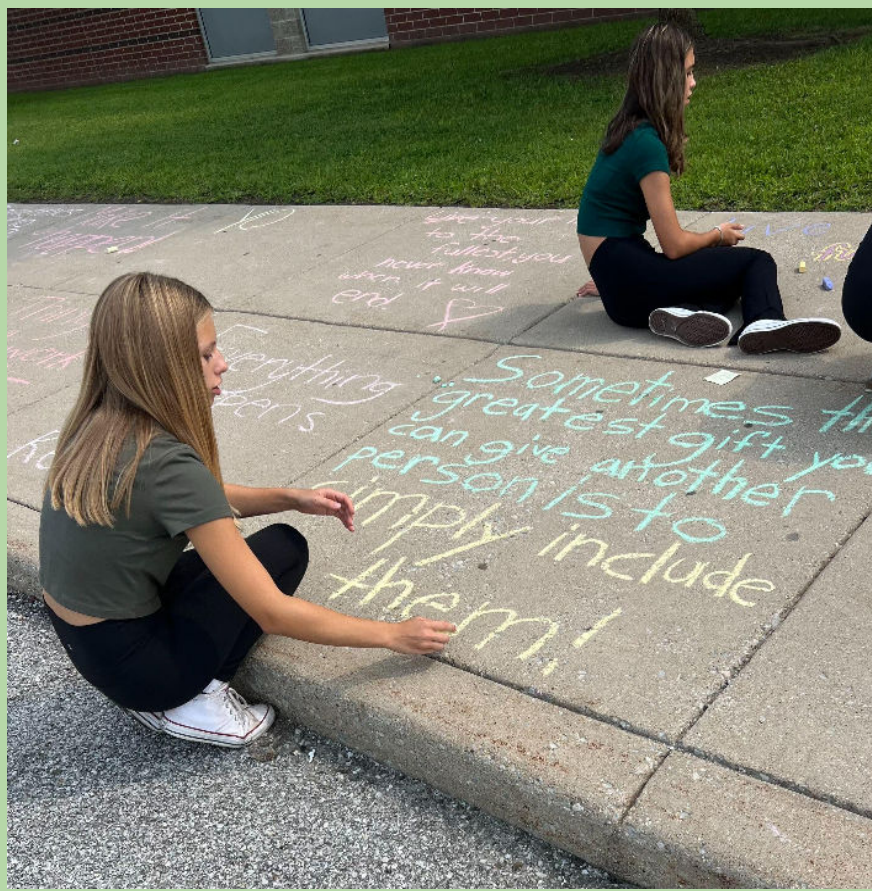 Make it
happen!
to the
fullest, you
never know
when it will
end.
Everything
Sometimes th
greatest gift you
can give another
person is to
simply include
them!